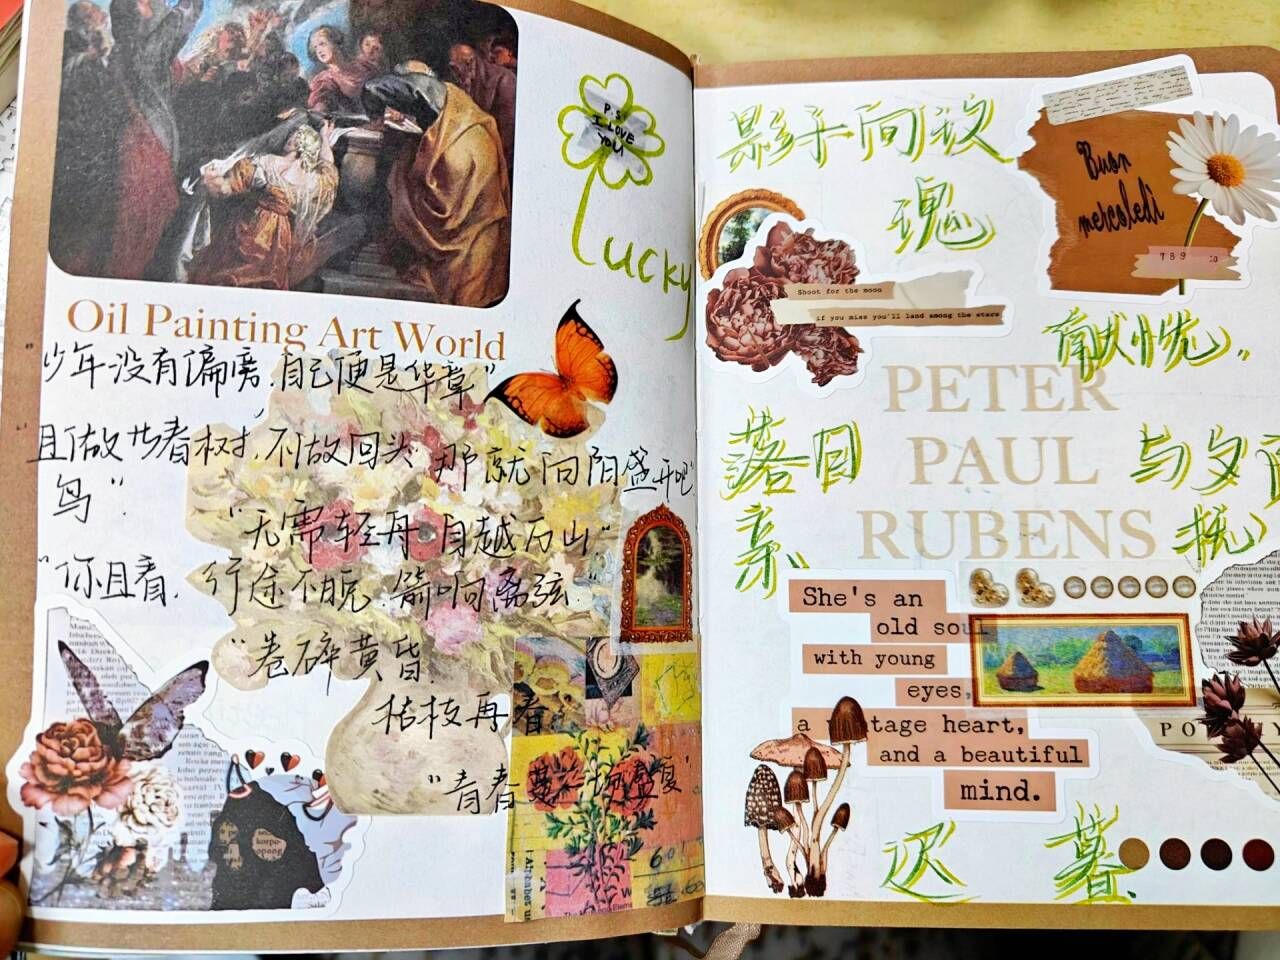 P.S.
I LOVE
YOU
Lucky
Oil Painting Art World
少年没有偏旁,自己便是华章"
且做与春树,不做回头
鸟"
那就向阳盛开吧"
"无需轻舟自越万山"
"你且看,行途不晚.箭响离弦
"卷碎黄昏
枯枝再春"
"青春是一场盛夏"
影子向玫
瑰
Buon
mercoledì
789
Shoot for the moon
if you miss you'll land among the stars
献忧
PETER
落日
PAUL
与
亲
RUBENS
She's an
old soul
with young
eyes,
a vintage heart,
and a beautiful
mind.
迟
暮